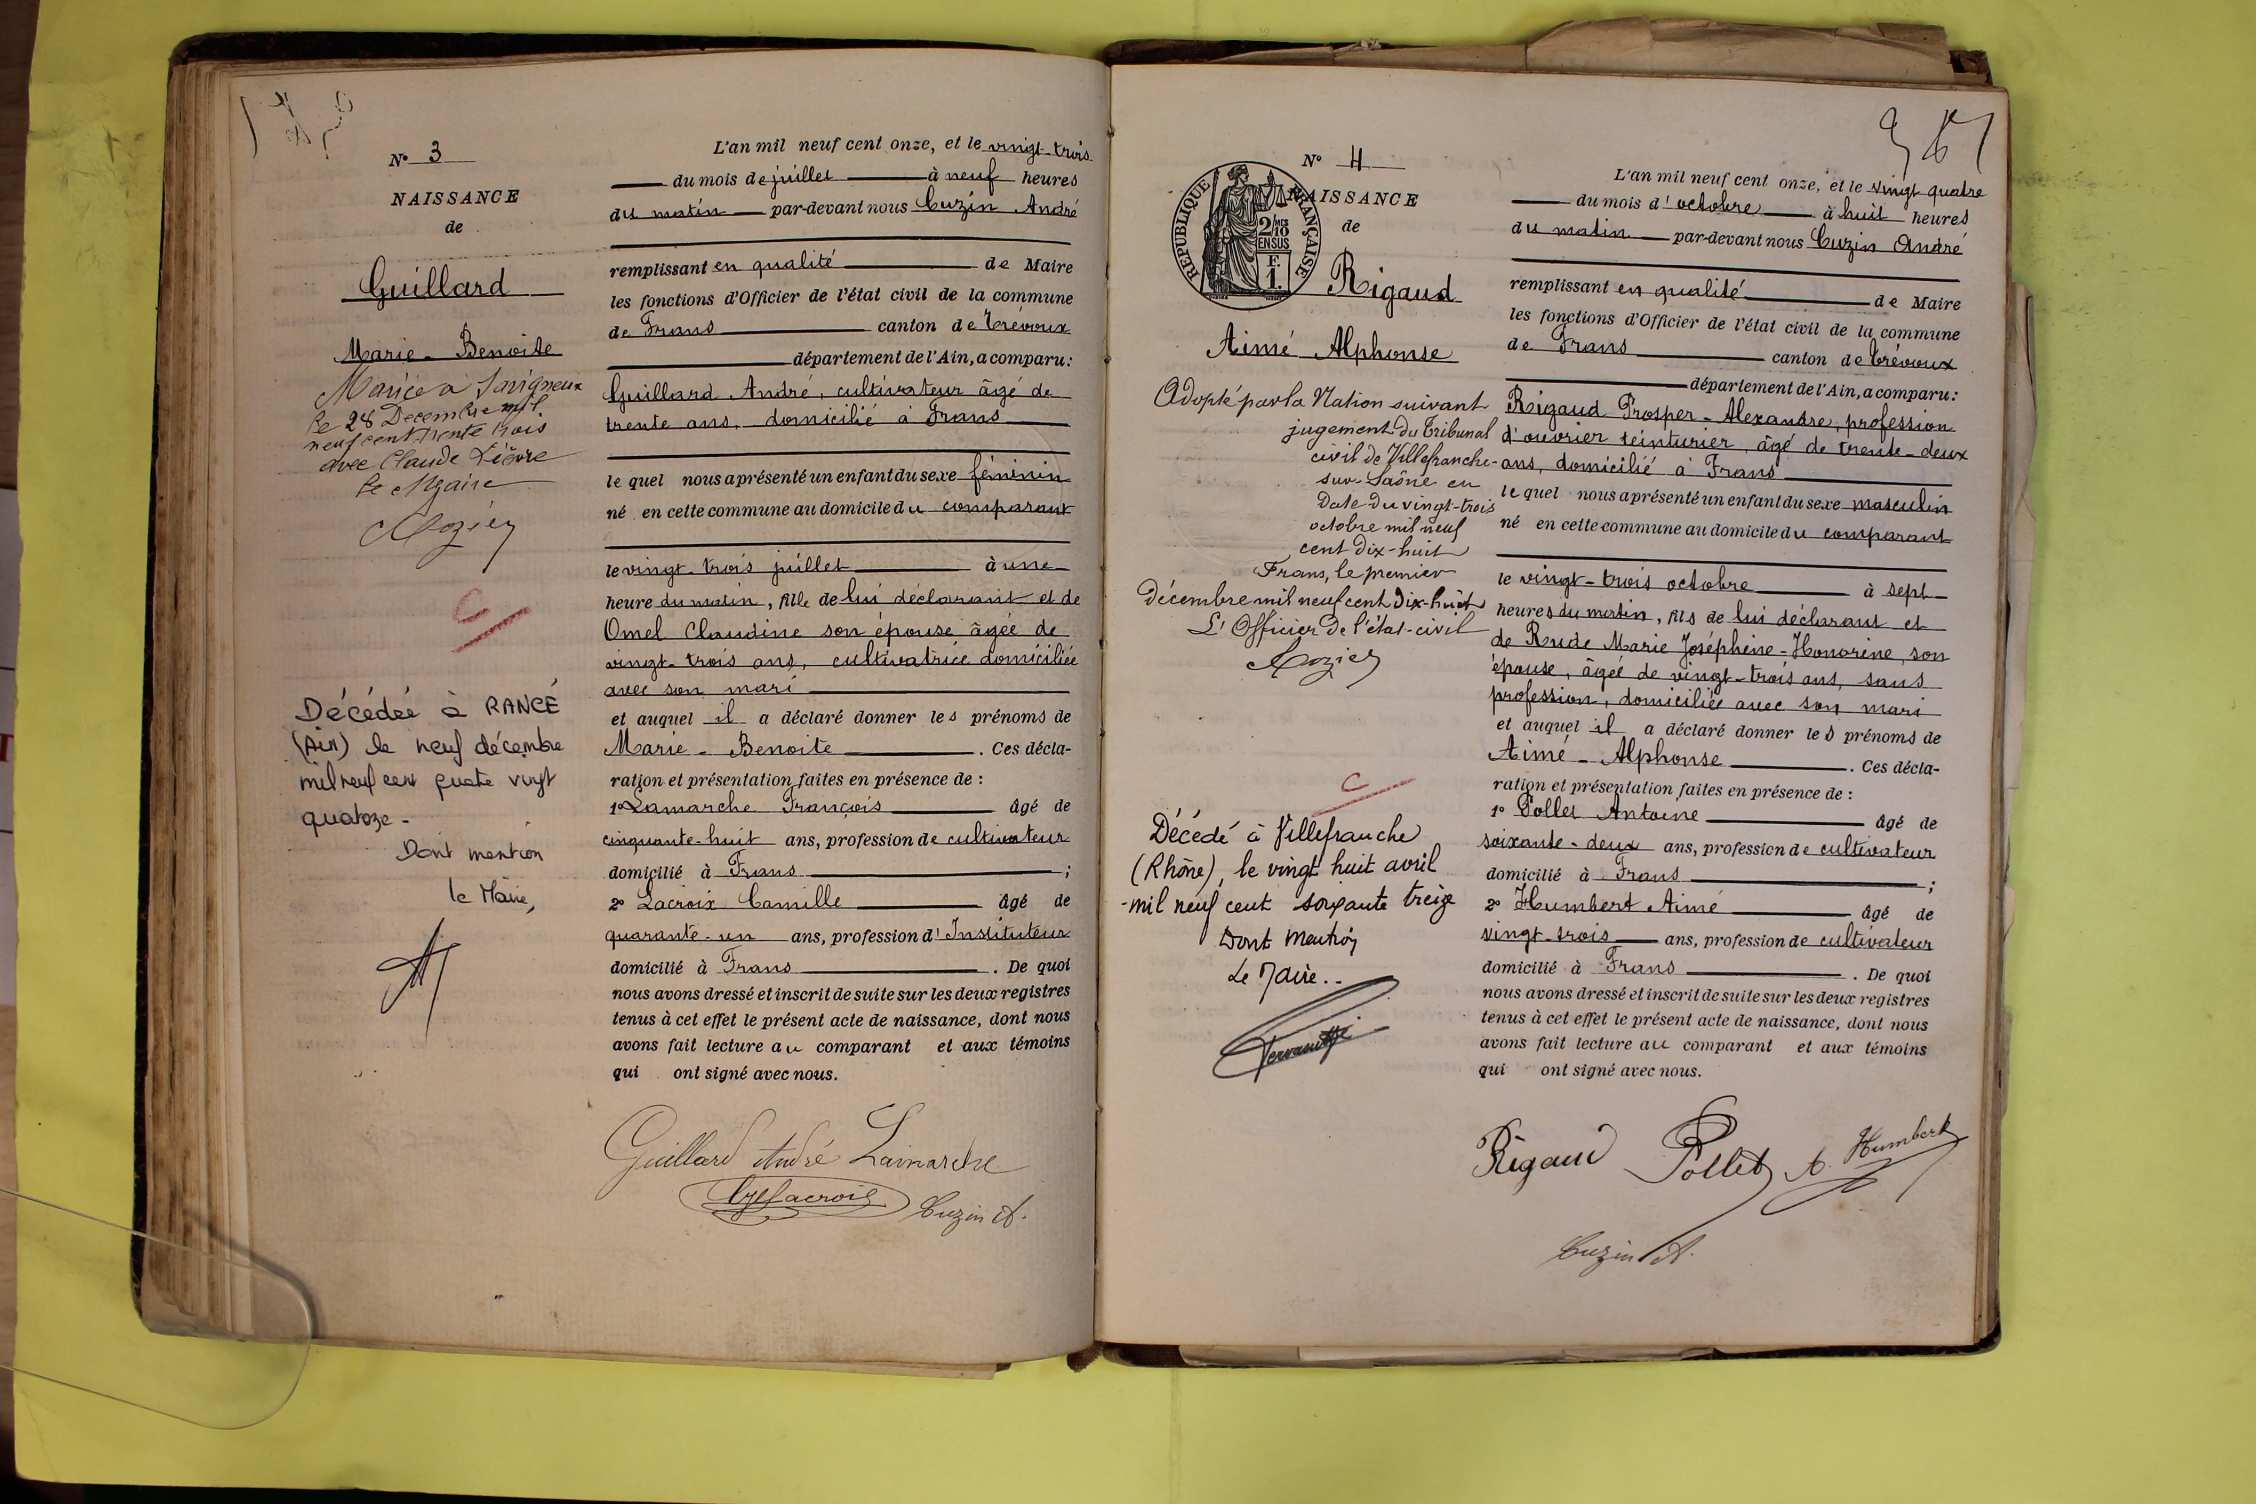 N° 3
NAISSANCE
de
Guillard
Marie-Benoite
Mariée à Savigneux
le 28 Decembre mil
neuf cent trente trois
avec Claude Lièvre
le Maire
C
Décédée à RANCÉ
(Ain) le neuf décembre
mil neuf cent quatre vingt
quatorze -
Dont mention
le Maire,
L'an mil neuf cent onze, et le vingt-trois
du mois de juillet à neuf heures
du matin par-devant nous Cuzin André
remplissant en qualité de Maire
les fonctions d'Officier de l'état civil de la commune
de Frans canton de Trévoux
département de l'Ain, a comparu:
Guillard André, cultivateur âgé de
trente ans, domicilié à Frans
le quel nous a présenté un enfant du sexe féminin
né en cette commune au domicile du comparant
le vingt-trois juillet à une
heure du matin, fille de lui déclarant et de
Omel Claudine son épouse âgée de
vingt-trois ans, cultivatrice domiciliée
avec son mari
et auquel il a déclaré donner les prénoms de
Marie-Benoite. Ces décla-
ration et présentation faites en présence de :
1° Lamarche François âgé de
cinquante-huit ans, profession de cultivateur
domicilié à Frans ;
2° Lacroix Camille âgé de
quarante-un ans, profession d'Instituteur
domicilié à Frans. De quoi
nous avons dressé et inscrit de suite sur les deux registres
tenus à cet effet le présent acte de naissance, dont nous
avons fait lecture au comparant et aux témoins
qui ont signé avec nous.
Guillard André Lamarche
Lacroix Cuzin A.
N° 4
NAISSANCE
de
RÉPUBLIQUE FRANÇAISE
2/10 MES
EN SUS
F.
1.
Rigaud
Aimé Alphonse
Adopté par la Nation suivant
jugement du Tribunal
civil de Villefranche-
sur-Saône en
date du vingt-trois
octobre mil neuf
cent dix-huit
Frans, le premier
décembre mil neuf cent dix-huit
L'Officier de l'état-civil
C
Décédé à Villefranche
(Rhône), le vingt huit avril
mil neuf cent soixante treize
Dont mention
Le Maire..
L'an mil neuf cent onze, et le vingt quatre
du mois d'octobre à huit heures
du matin par-devant nous Cuzin André
remplissant en qualité de Maire
les fonctions d'Officier de l'état civil de la commune
de Frans canton de Trévoux
département de l'Ain, a comparu:
Rigaud Prosper-Alexandre, profession
d'ouvrier teinturier, âgé de trente-deux
ans, domicilié à Frans
le quel nous a présenté un enfant du sexe masculin
né en cette commune au domicile du comparant
le vingt-trois octobre à sept
heures du matin, fils de lui déclarant et
de Rude Marie Joséphine-Honorine, son
épouse, âgée de vingt-trois ans, sans
profession, domiciliée avec son mari
et auquel il a déclaré donner les prénoms de
Aimé-Alphonse. Ces décla-
ration et présentation faites en présence de :
1° Pollet Antoine âgé de
soixante-deux ans, profession de cultivateur
domicilié à Frans ;
2° Humbert Aimé âgé de
vingt-trois ans, profession de cultivateur
domicilié à Frans. De quoi
nous avons dressé et inscrit de suite sur les deux registres
tenus à cet effet le présent acte de naissance, dont nous
avons fait lecture au comparant et aux témoins
qui ont signé avec nous.
Rigaud Pollet A. Humbert
Cuzin A.